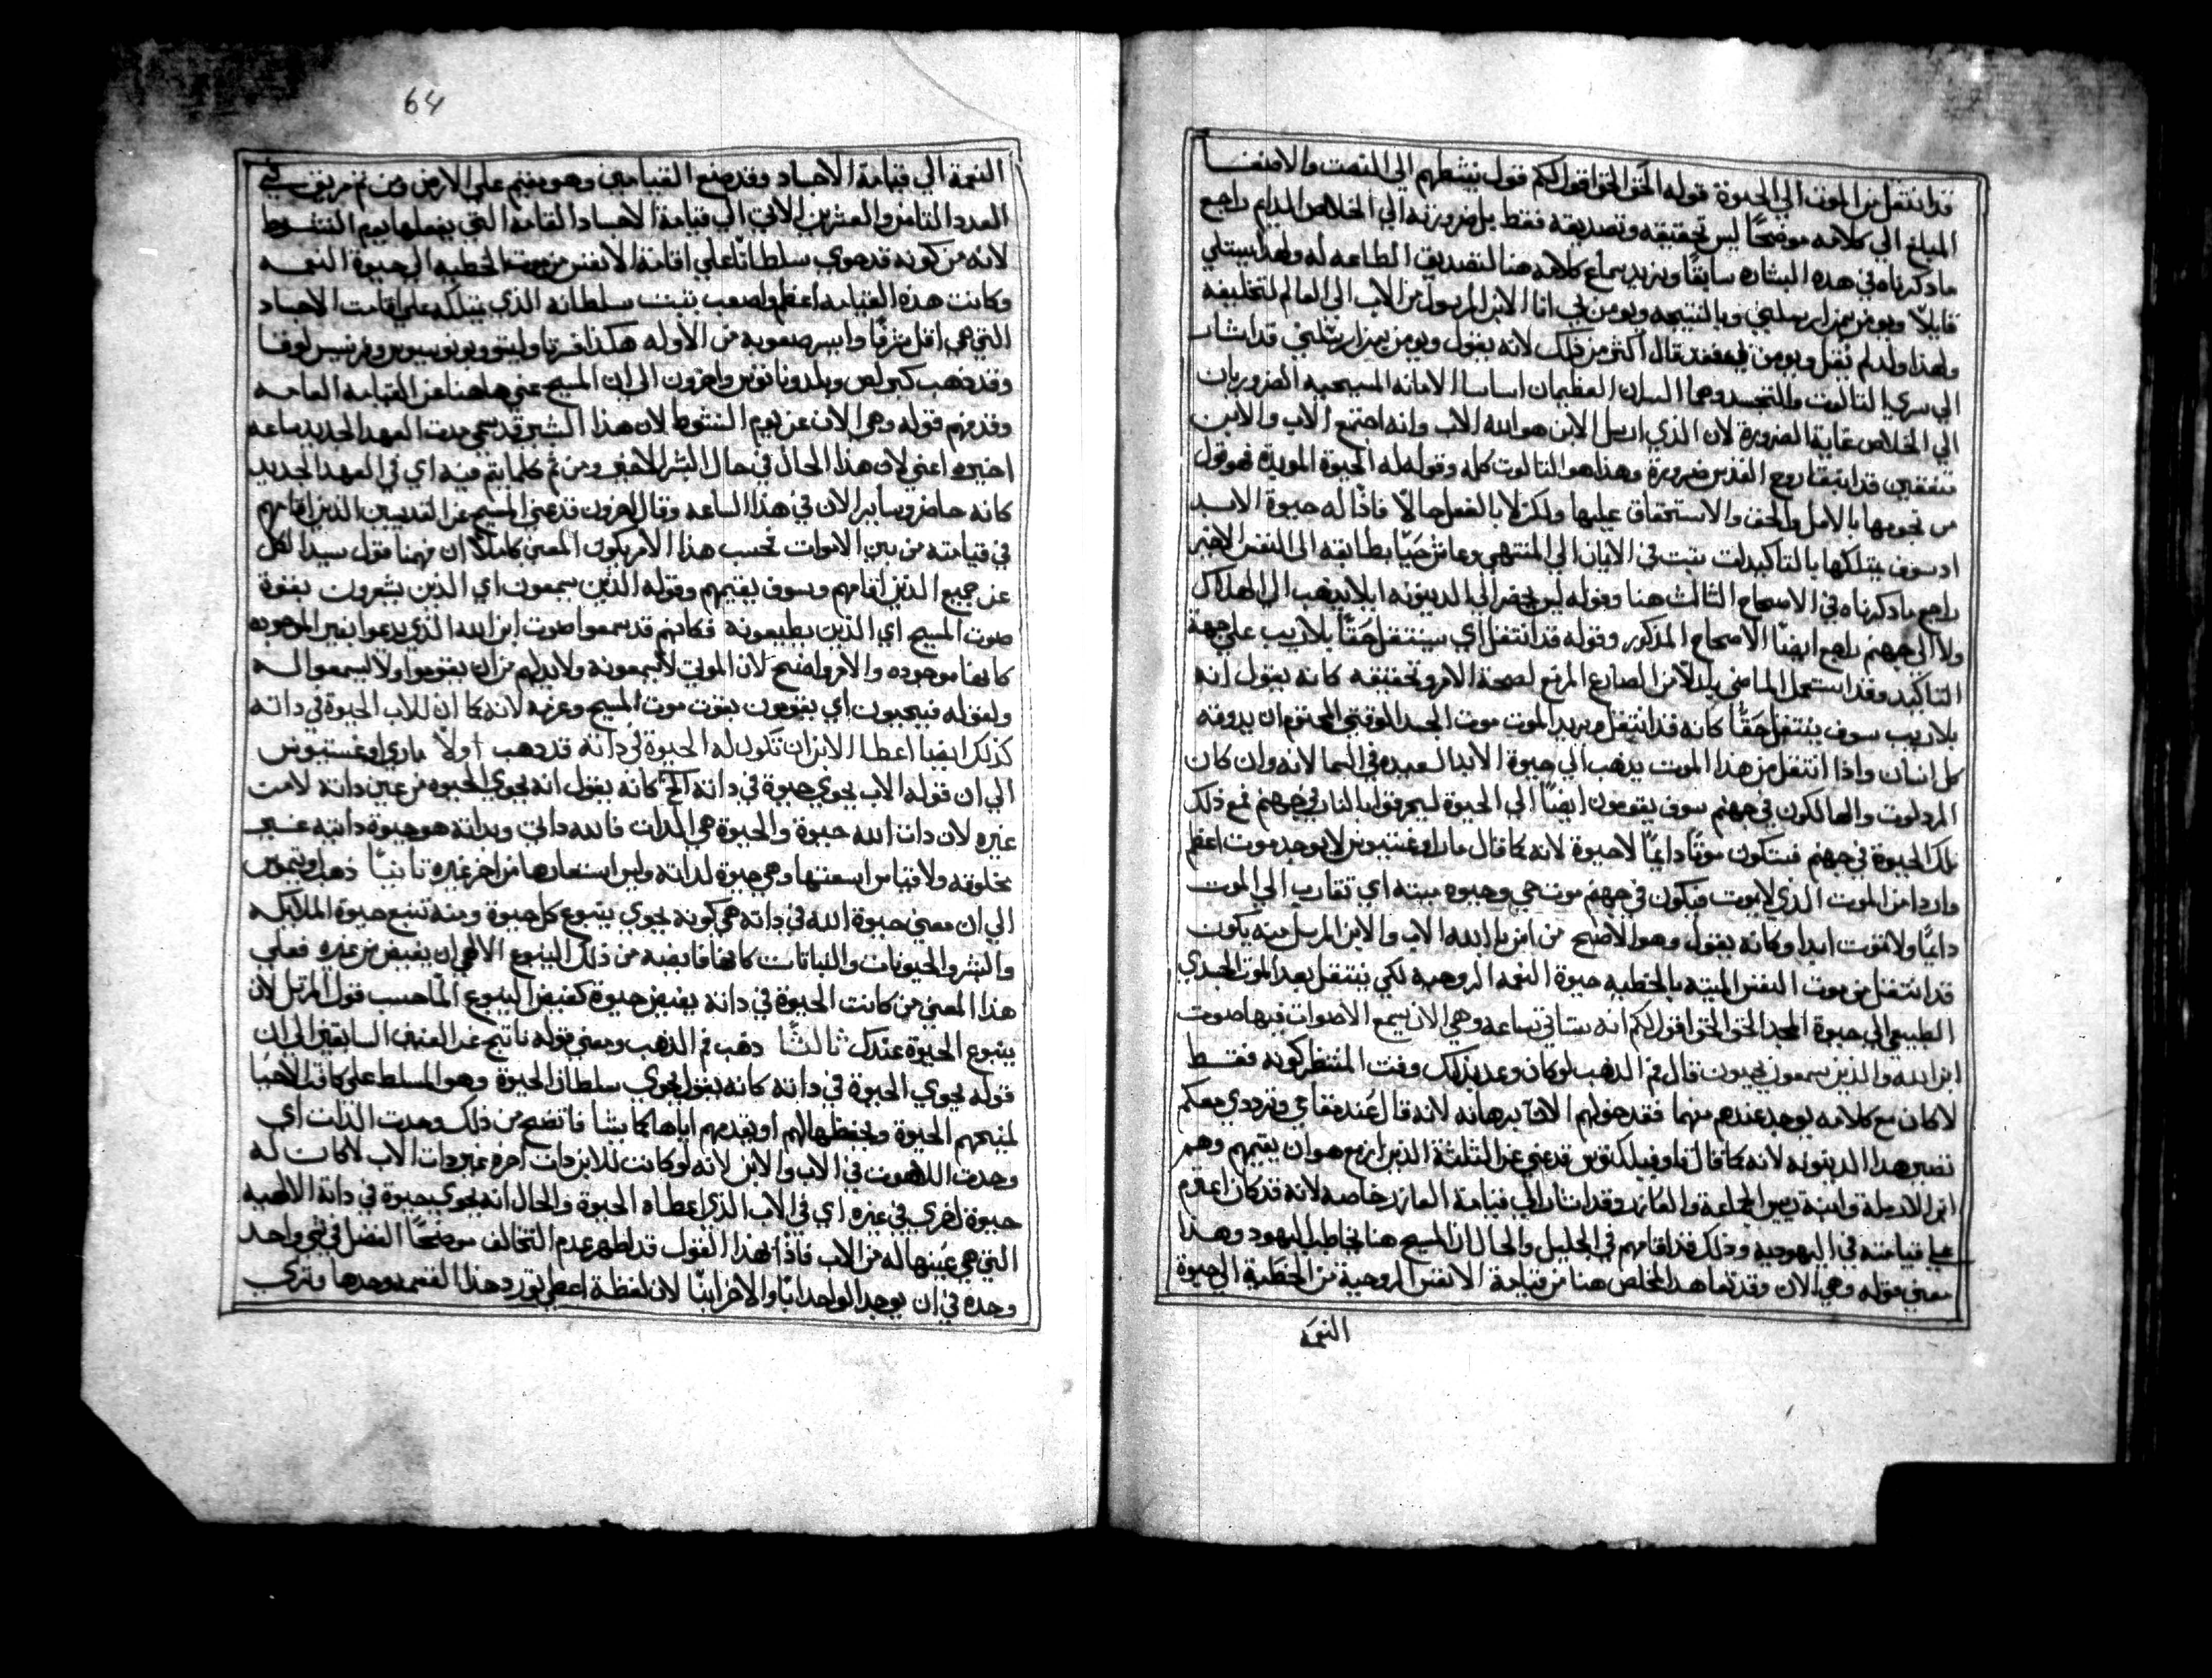 قد انتقل من الموت الي الحيوة قوله الحق الحق اقول لكم قول ينشطهم الي التنصت والاصغا
المبلغ الي كلامه موضحًا ليس تحقيقه وتصديقه فقط بل ضرورته الي الخلاص الدايم راجع
ما دكرناه في هده البشاره سابقًا ويزيد سماع كلامه هنا لتصديق الطاعه له ولهدا يبتلي
قايلاً ويومن بمن ارسلني وبالنتيجه ويومن بي انا الابن المرسول من الاب الي العالم لتخليصه
ولهذا ولم يقل ويومن بي فقد قال اكثر من ذلك لانه يقول ويومن بمن ارسلني قد اشار
الي سري التالوت والتجسد وهما السران العظيمان اساسا الامانه المسيحيه الضروريان
الي الخلاص غاية الضرورة لان الذي ارسل الابن هو الله الاب وانه اجتمع الاب والابن
متفقين قد انبثقا روح القدس ضرورة وهذا هو التالوت كله وقوله له الحيوة الموبدة فهو قول
من نحويها بالامل والحق والاستحقاق عليها ولكن لا بالفعل حالاً فاذًا له حيوة الابد
اد سوف يتملكها بالتاكيد ان تبت في الايمان الي المنتهي وعاش حيًا بطابقه الي النفس الاخير
راجع ما دكرناه في الاصحاح الثالث هنا وقوله ليس يحضر الي الدينونه اي لا يذهب الي الهلاك
ولا الي جهنم راجع ايضًا الاصحاح المذكور وقوله قد انتقل اي سينتقل حقًا بلا ريب علي جهة
التاكيد وقد استعمل الماضي بدلاً من المضارع المرفع لصحة الامر وتحقيقه كانه يقول انه
بلا ريب سوف ينتقل حقًا كانه قد انتقل ويريد بالموت موت الجسد الوقتي المحتوم ان يدوقه
كل انسان واذا انتقل من هذا الموت يدهب الي حيوة الابد السعيده في السما لانه وان كان
المردولون والهالكون في جهنم سوف يقومون ايضًا الي الحيوة ليحرقوا بالنار في جهنم فمع ذلك
تلك الحيوة في جهنم فستكون موتًا دايمًا لا حيوة لانه كما قال مار اوغستينوس لا يوجد موت اعظم
واردا من الموت الذي لا يموت فيكون في جهنم موت حي وحيوه ميته اي تقارب الي الموت
دايمًا ولا تموت ابدا وكانه يقول وهو الاصح من امن بالله الاب والابن المرسل منه يكون
قد انتقل من موت النفس الميته بالخطيه حيوة النعمه الروحيه لكي ينتقل بعد الموت الجسدي
الطبيعي الي حيوة المجد الحق الحق اقول لكم انه ستاتي ساعه وهي الان يسمع الاموات فيها صوت
ابن الله والذين يسمعون يحيون قال فم الدهب لو كان وعد بذلك وقت المنتظر كونه فقط
لا كان مع كلامه يوجد عندهم متهما فقد خولهم الان برهانه لانه قال عنده مقامي وترددي معكم
تصير هدا الدينونه لانه كما قال تاوفيلكتوس قد عني عن الثلثة الدين ازمع هو ان يقيمهم وهم
ابن الارملة وابنة ريس الجماعة والعازر وقد اشار الي قيامة العازر خاصه لانه قد كان اعتزم
علي قيامته في اليهوديه وذلك قد اقامهم في الجليل والحال ان المسيح هنا يخاطب اليهود وهذا
معني قوله وهي الان وقد تماهد المخلص هنا من قيامة الانفس الروحية من الخطية الي حيوة
النعمة
64
النعمة الي قيامة الاجساد وقد صنع القيامتين وهو مقيم علي الارض ومن ثم مريق في
العدد الثامن والعشرين الاتي الي قيامة الاجساد العامه التي يفعلها يوم النشور
لانه من كونه قد حوي سلطانًا علي اقامة الانفس من موت الخطيه الي حيوة النعمه
وكانت هذه القيامه اعظم واصعب تثبت سلطانه الذي يتملكه علي اقامت الاجساد
التي هي اقل شرفًا وايسر صعوبه من الاوله هكذا فسر تاوليتوس وبونوسيوس وفرنسيس لوقا
وقد دهب كيرلص ويلدوناتوس واخرون الي ان المسيح عني هاهنا عن القيامه العامه
وقد فهم قوله وهي الان عن يوم النشور لان هذا الشين قد سمي مدت العهد الجديد ساعه
اخيره اعني لان هذا الحال في حال البشر الاخير ومن ثم كلما يتم فيه اي في العهد الجديد
كانه حاضر وساير الان في هذا الساعه وقال اخرون قد عني المسيح عن القديسين الذين اقامهم
في قيامته من بين الاموات بحسب هذا الامر يكون المعني كاملاً ان فهمنا مقول سيد الكل
عن جميع الذين اقامهم وسوف يقيمهم وقوله الذين يسمعون اي الذين يشعرون بقوة
صوت المسيح اي الذين يطيعونه فكانهم قد سمعوا صوت ابن الله الذي يدعوا بغير الموجوده
كانها موجوده والامر واضح لان الموتي لا يسمعونه ولا بد لهم من ان يقوموا ولا يسمعوا له
ولقوله فيحيون اي يقومون بقوت موت المسيح وعزمه لانه كما ان للاب الحيوة في داته
كذلك ايضا اعطا الابن ان تكون له الحيوة في داته قد دهب اولاً ماري اوغستينوس
الي ان قوله الاب يحوي حيوة في داته الخ كانه يقول انه يحوي الحيوه من عين داته لا من
غيره لان دات الله حيوة والحيوة هي الدات فالله داتي وبداته هو حيوة داتيه غير
مخلوقه ولا قياس اسعتها وهي حيوة لداته وليس استعارها من اخر غيره ثانيًا ذهب اوتيموس
الي ان معني حيوة الله في داته هي كونه يحوي ينبوع كل حيوة ومنه تنبع حيوة الملايكه
والبشر والحيونات والنباتات كانها فايضه من ذلك الينبوع الالهي ان يفيض من غيره فعلي
هذا المعني من كانت الحيوة في داته يفيض حيوة كفيض الينبوع الما حسب قول المرتل لان
ينبوع الحيوة عندك ثالثًا دهب فم الدهب ومعني قوله ناتج عن المعنين السابقين الي ان
قوله يحوي الحيوة في داته كانه يقول يحوي سلطان الحيوة وهو المسلط علي كافة الاحيا
لمنحهم الحيوة ويحفظها لهم او يعدمهم اياها كما يشا فاتضح من ذلك وحدت الذات اي
وحدت اللاهوت في الاب والابن لانه لو كانت للابن دات اخره غير دات الاب لا كانت له
حيوة اخري في غيره اي في الاب الذي اعطاه الحيوة والحال انه يحوي حيوة في داته الالهيه
التي هي عينها له من الاب فاذًا بهذا القول قد اظهر عدم التخالف موضحًا الفضل في شي واحد
وحده في ان يوجد الواحد ابًا والاخر ابنًا لان لفظة اعطي تورد هذا القسمه وحدها وتري